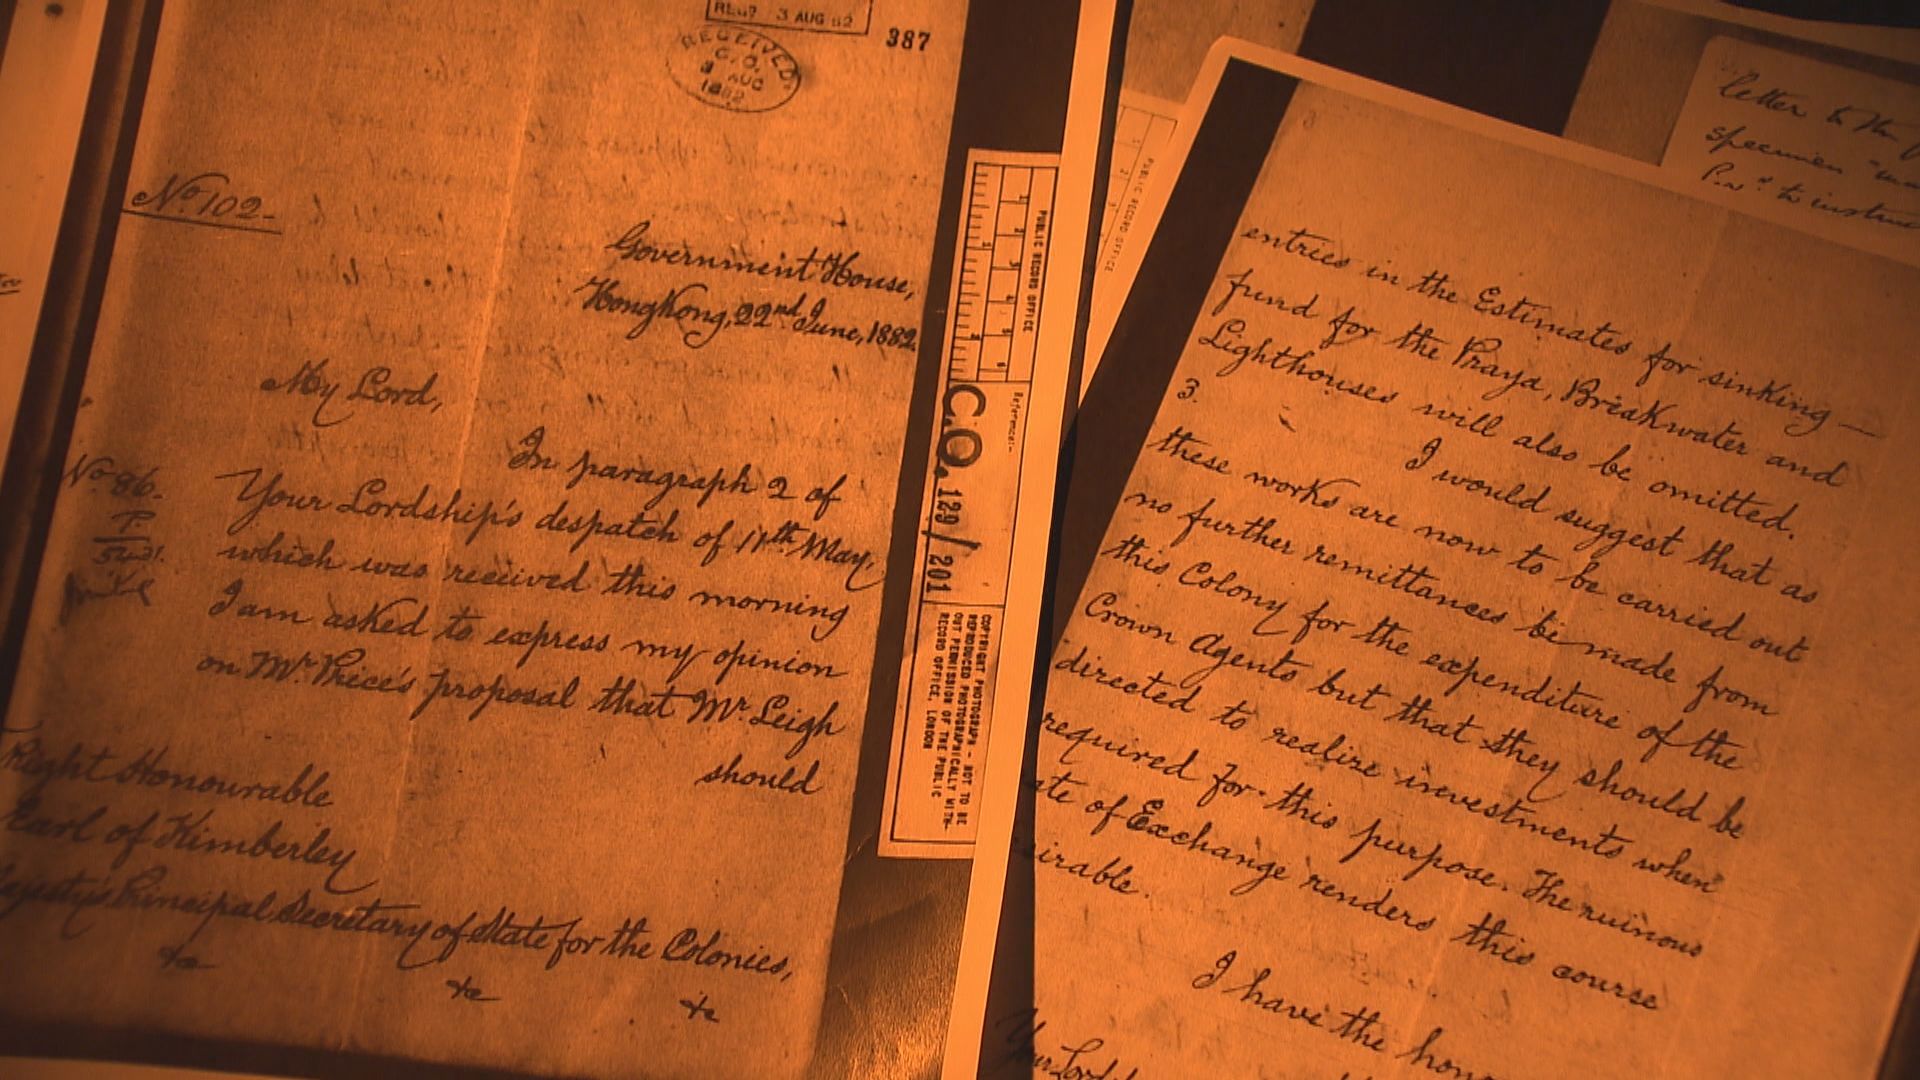 REGD 3 AUG 82
387
RECEIVED
C.O.
3 AUG
1882
No. 102-
Government House,
HongKong, 22nd June, 1882.
My Lord,
In paragraph 2 of
No. 86.
Your Lordship's despatch of 11th May,
which was received this morning
I am asked to express my opinion
on Mr. Price's proposal that Mr. Leigh
should
Right Honourable
Earl of Kimberley
Principal Secretary of State for the Colonies,
&c &c &c
PUBLIC RECORD OFFICE
Reference:-
C.O. 129/201
COPYRIGHT PHOTOGRAPH - NOT TO BE
REPRODUCED PHOTOGRAPHICALLY WITH-
OUT PERMISSION OF THE PUBLIC
RECORD OFFICE, LONDON
PUBLIC RECORD OFFICE
entries in the Estimates for sinking —
fund for the Praya, Breakwater and
Lighthouses will also be omitted.
3. I would suggest that as
these works are now to be carried out
no further remittances be made from
this Colony for the expenditure of the
Crown Agents but that they should be
directed to realize investments when
required for this purpose. The ruinous
of Exchange renders this course
I have the
letter to the
specimen
to